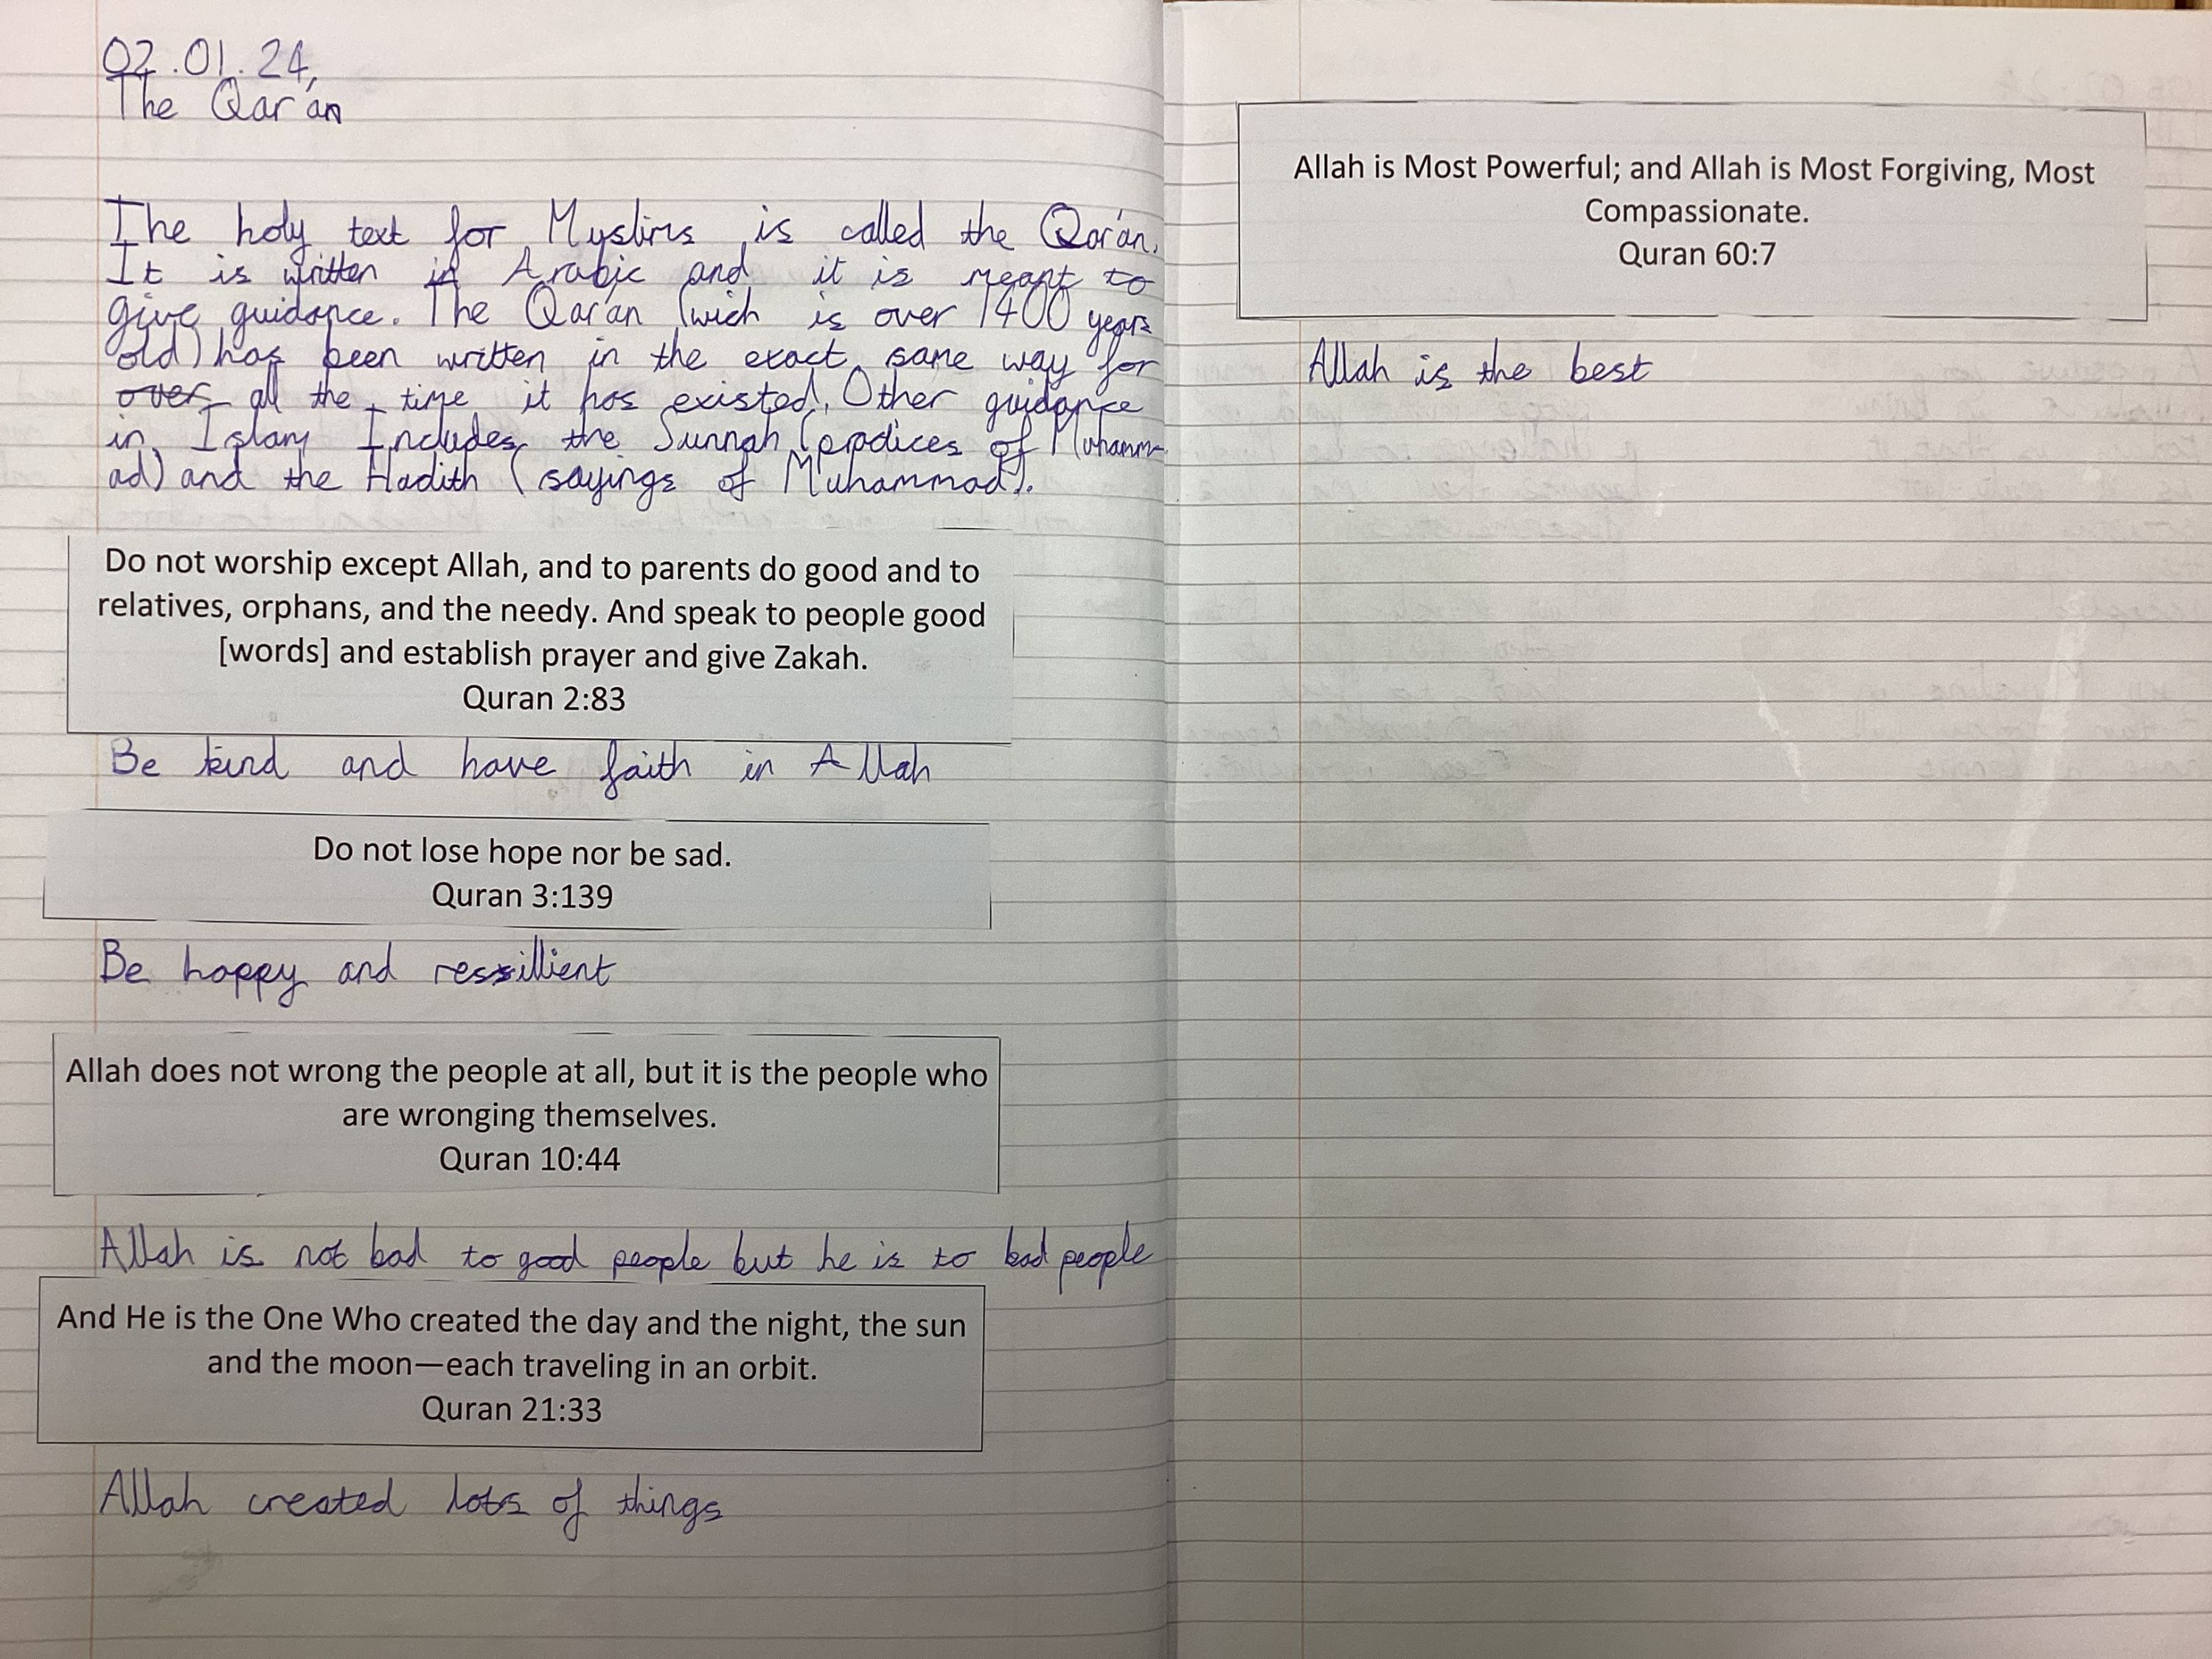 02.01.24,
The Qar'an
The holy text for Muslims is called the Qor'an.
It is written in Arabic and it is meant to
give guidance. The Qar'an (wich is over 1400 years
old) has been written in the exact same way for
over all the time it has existed. Other guidance
in Islam Includes the Sunnah (prodices of Muhamm-
ad) and the Hadith (sayings of Muhammad).
Do not worship except Allah, and to parents do good and to
relatives, orphans, and the needy. And speak to people good
[words] and establish prayer and give Zakah.
Quran 2:83
Be kind and have faith in Allah
Do not lose hope nor be sad.
Quran 3:139
Be happy and ressillient
Allah does not wrong the people at all, but it is the people who
are wronging themselves.
Quran 10:44
Allah is not bad to good people but he is to bad people
And He is the One Who created the day and the night, the sun
and the moon—each traveling in an orbit.
Quran 21:33
Allah created lots of things
Allah is Most Powerful; and Allah is Most Forgiving, Most
Compassionate.
Quran 60:7
Allah is the best